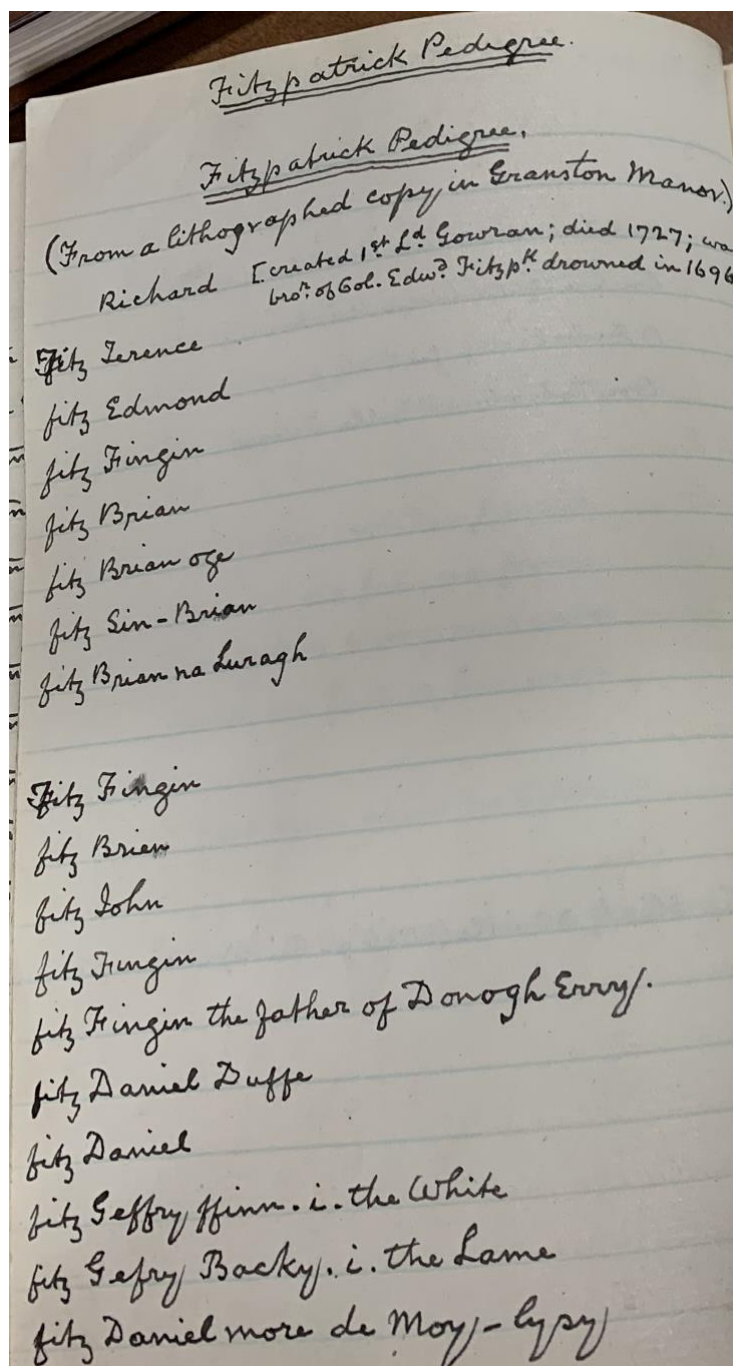 Fitzpatrick Pedigree.
Fitzpatrick Pedigree.
(From a lithographed copy in Granston Manor.)
Richard [created 1st Ld Gowran; died 1727; wa
bror. of Col. Edwd. Fitzpk. drowned in 1696
Fitz Terence
fitz Edmond
fitz Fingin
fitz Brian
fitz Brian oge
fitz Sin-Brian
fitz Brian na Luragh
Fitz Fingin
fitz Brien
fitz John
fitz Fingin
fitz Fingin the father of Donogh Erry.
fitz Daniel Duffe
fitz Daniel
fitz Geffry ffinn .i. the White
fitz Gefry Backy .i. the Lame
fitz Daniel more de Moy-lypy